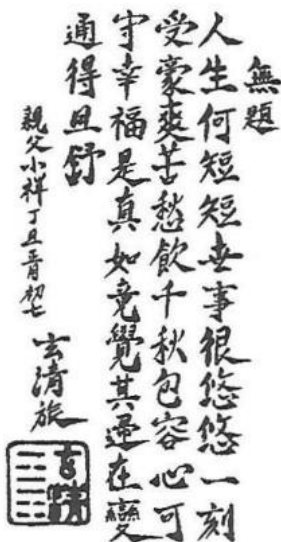 無題
人生何短短世事很悠悠一刻
受豪爽苦愁飲千秋包容心可
守幸福是真如竟覺其在變
通得且舒
親父小祥丁丑正月初七
玄清旅